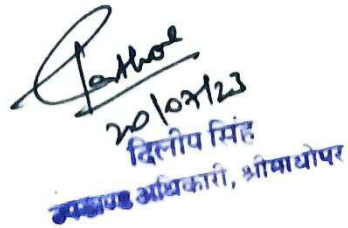 Rathore
20/07/23
दिलीप सिंह
उपखण्ड अधिकारी, श्रीमाधोपुर